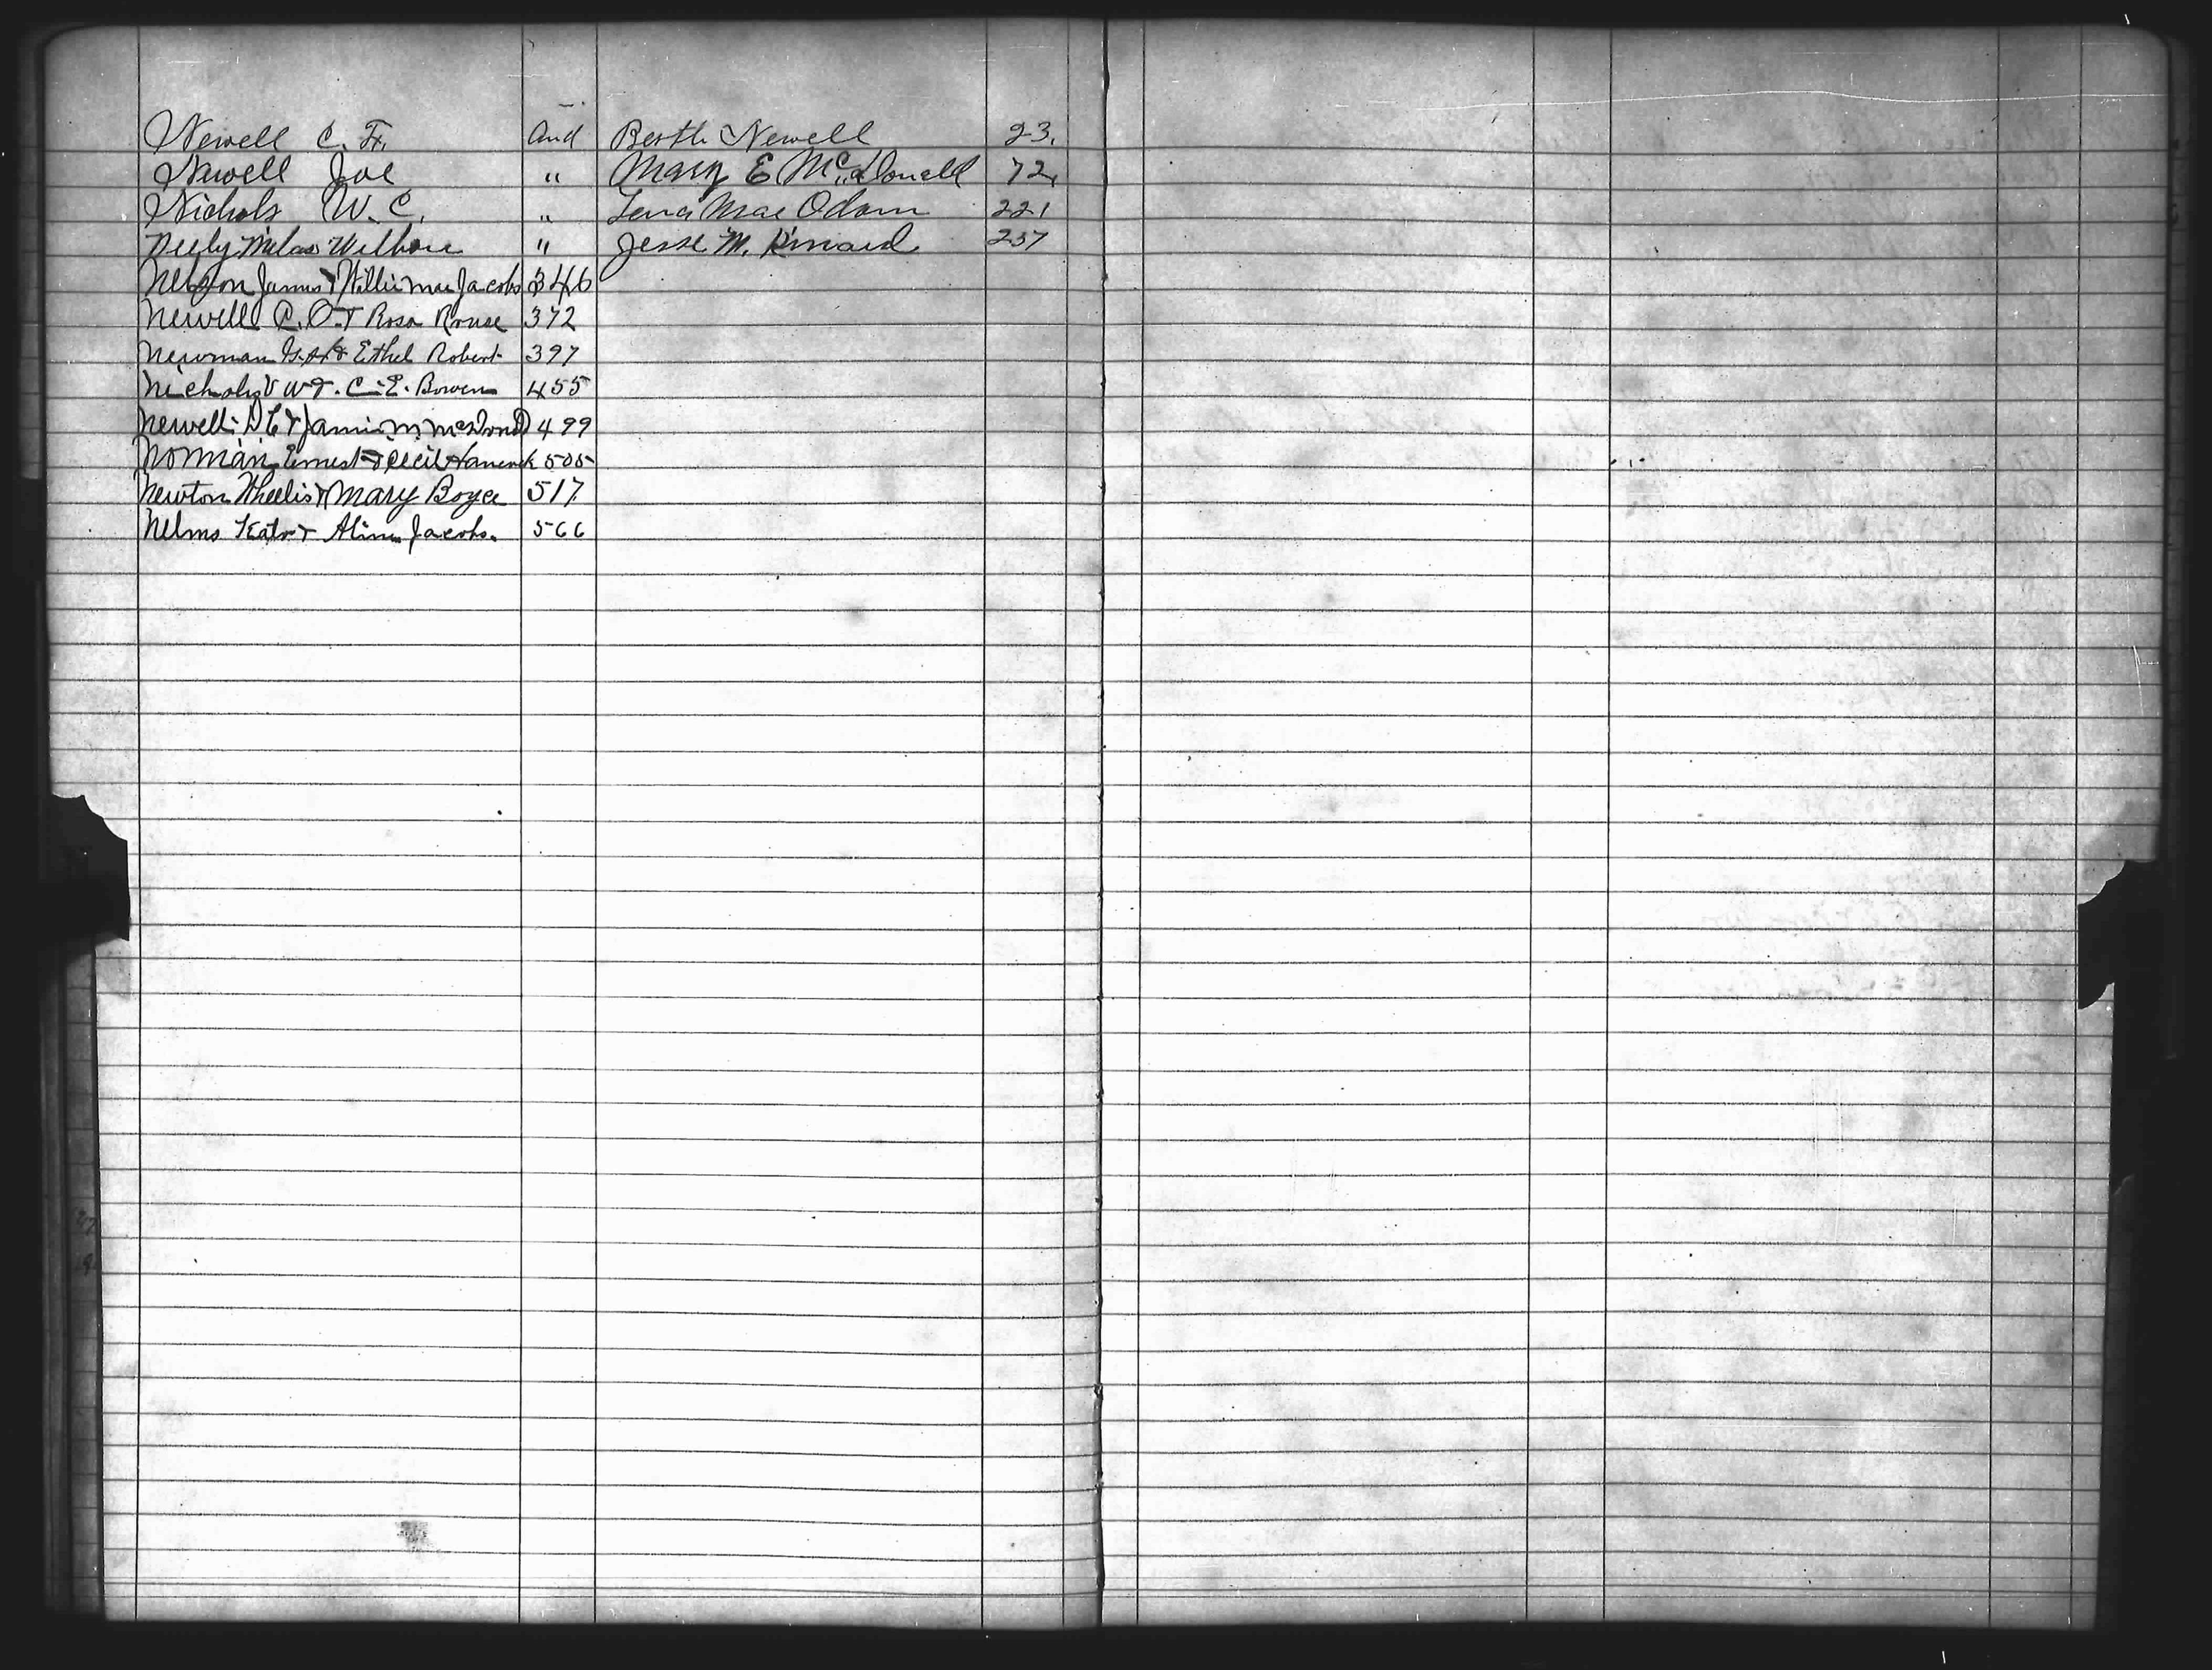 Newell C. F. and Berth Newell 23.
Newell Joe " Mary E McDonell 72,
Nichols W. C. " Lena Mae Odom 221
Neely Milas " Jesse M. Kinard 237
Nelson James & Willie Mae Jacobs 346
Newell C. O. & Rosa Rouse 372
Newman & Ethel Robert 397
Nichols W & C. E. Bowen 455
Newell & M 499
Norman Ernest & Cecil Hancock 505
Newton Wheelis & Mary Boyce 517
Nelms & Jacobs. 566